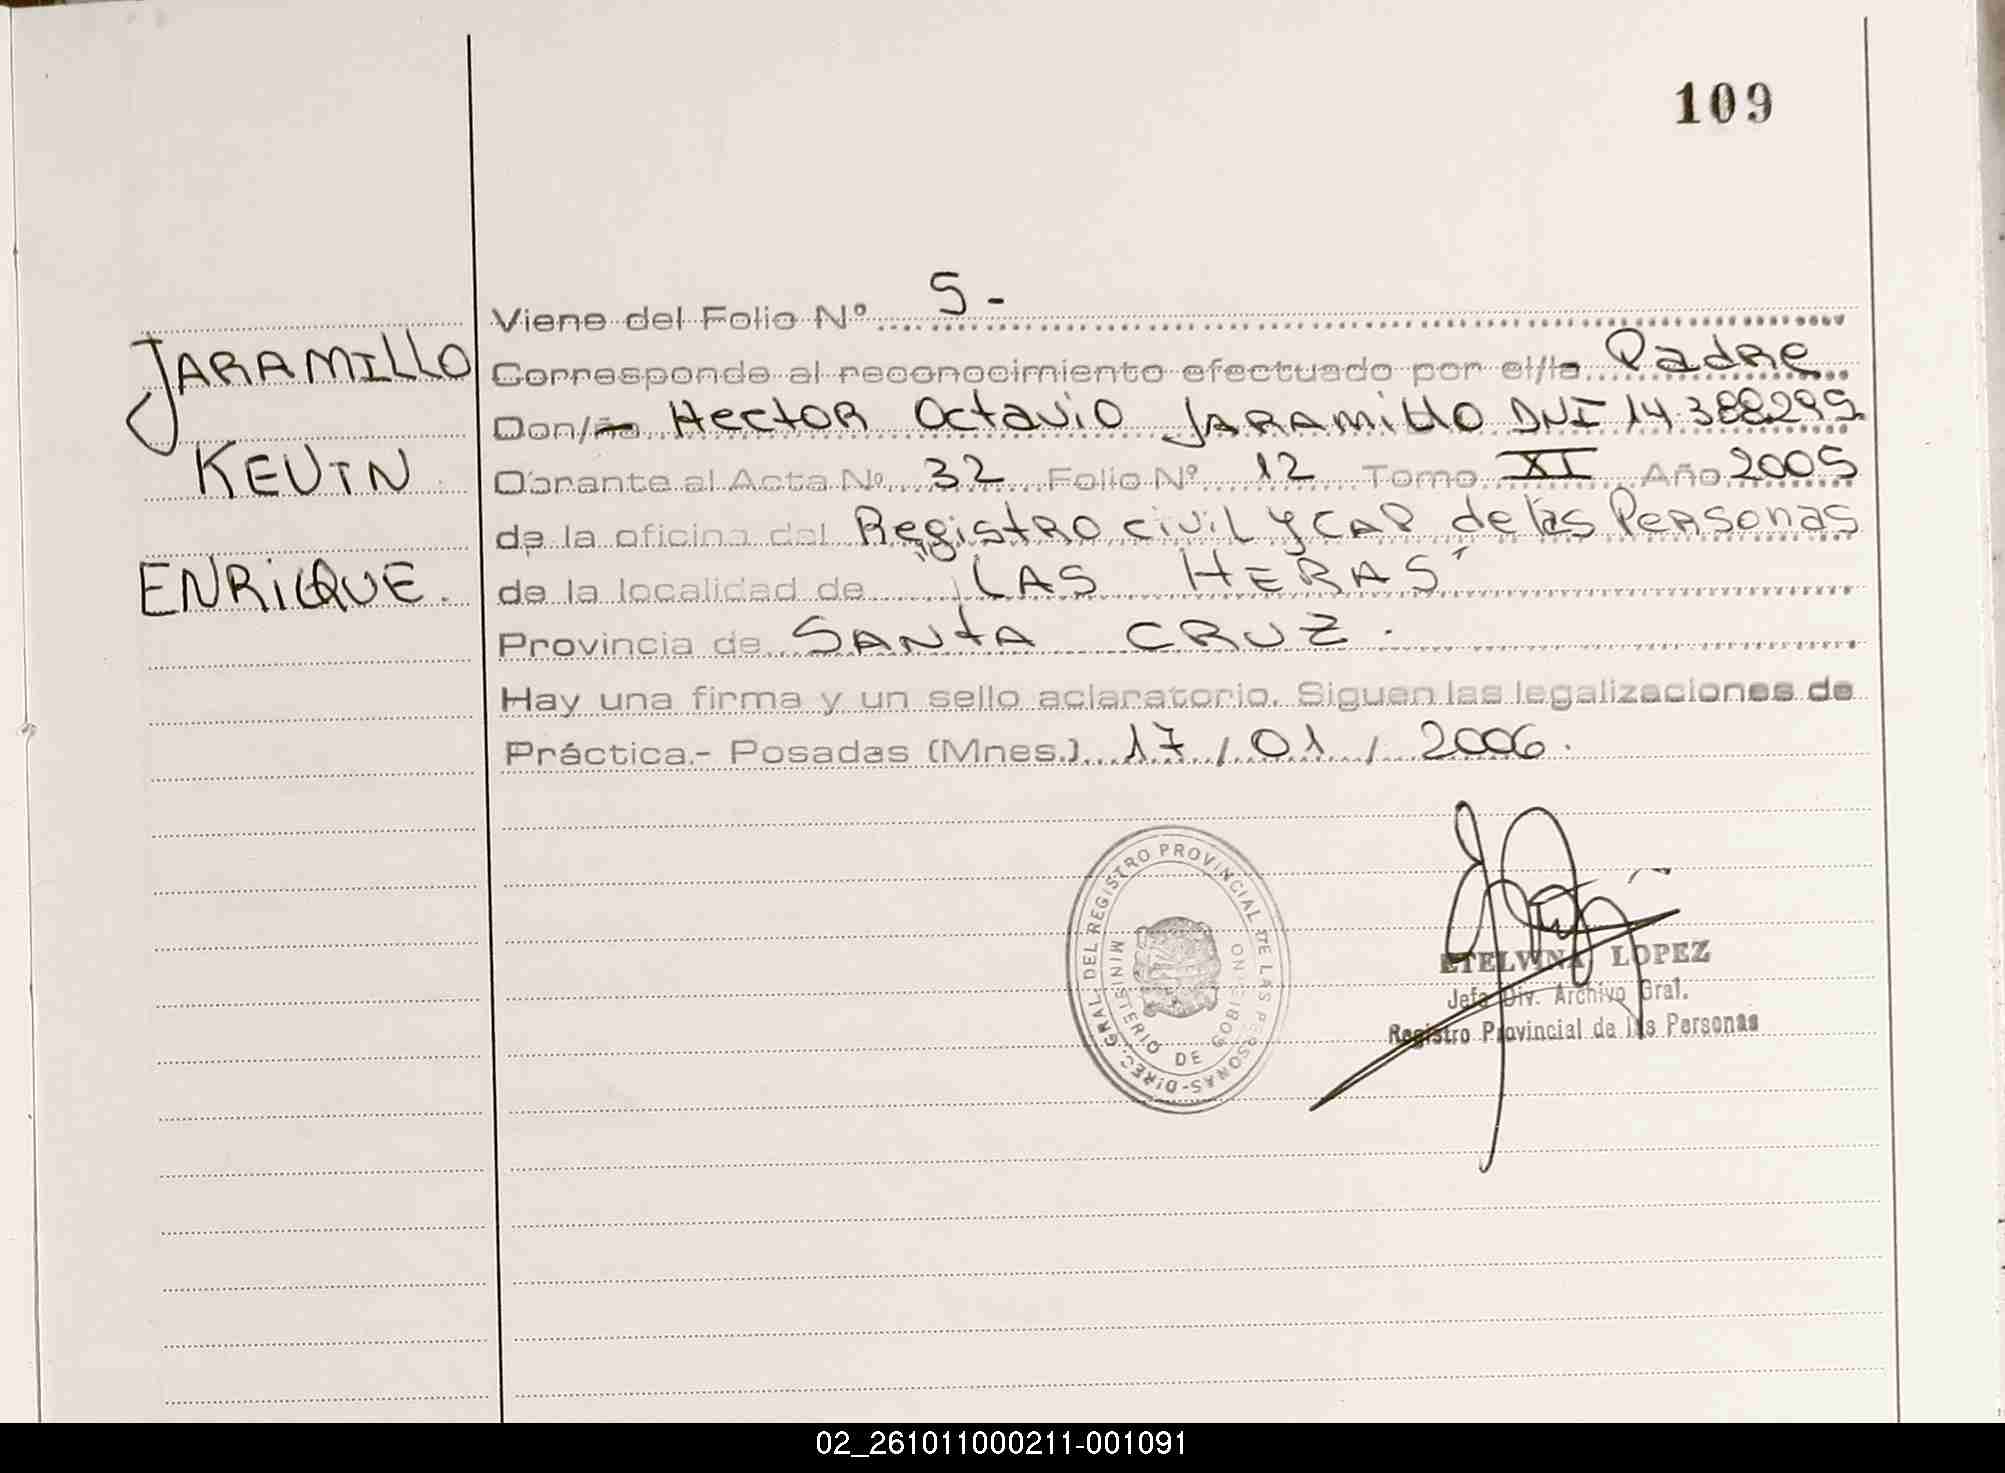 109
Viene del Folio Nº 5 -
JARAMILLO
Corresponde al reconocimiento efectuado por el/la Padre
Don/ña Hector Octavio JARAMILLO DNI 14.388299
KEVIN
Obrante al Acta Nº 32 Folio Nº 12 Tomo XI Año 2005
de la oficina del Registro civil y CAP de las Personas
ENRIQUE.
de la localidad de "LAS HERAS"
Provincia de SANTA CRUZ.
Hay una firma y un sello aclaratorio. Siguen las legalizaciones de
Práctica.- Posadas (Mnes.) 17 / 01 / 2006.
DIREC. GRAL. DEL REGISTRO PROVINCIAL DE LAS PERSONAS-
MINISTERIO DE GOBIERNO
ETELVINA LOPEZ
Jefa Div. Archivo Gral.
Registro Provincial de las Personas
02_261011000211-001091